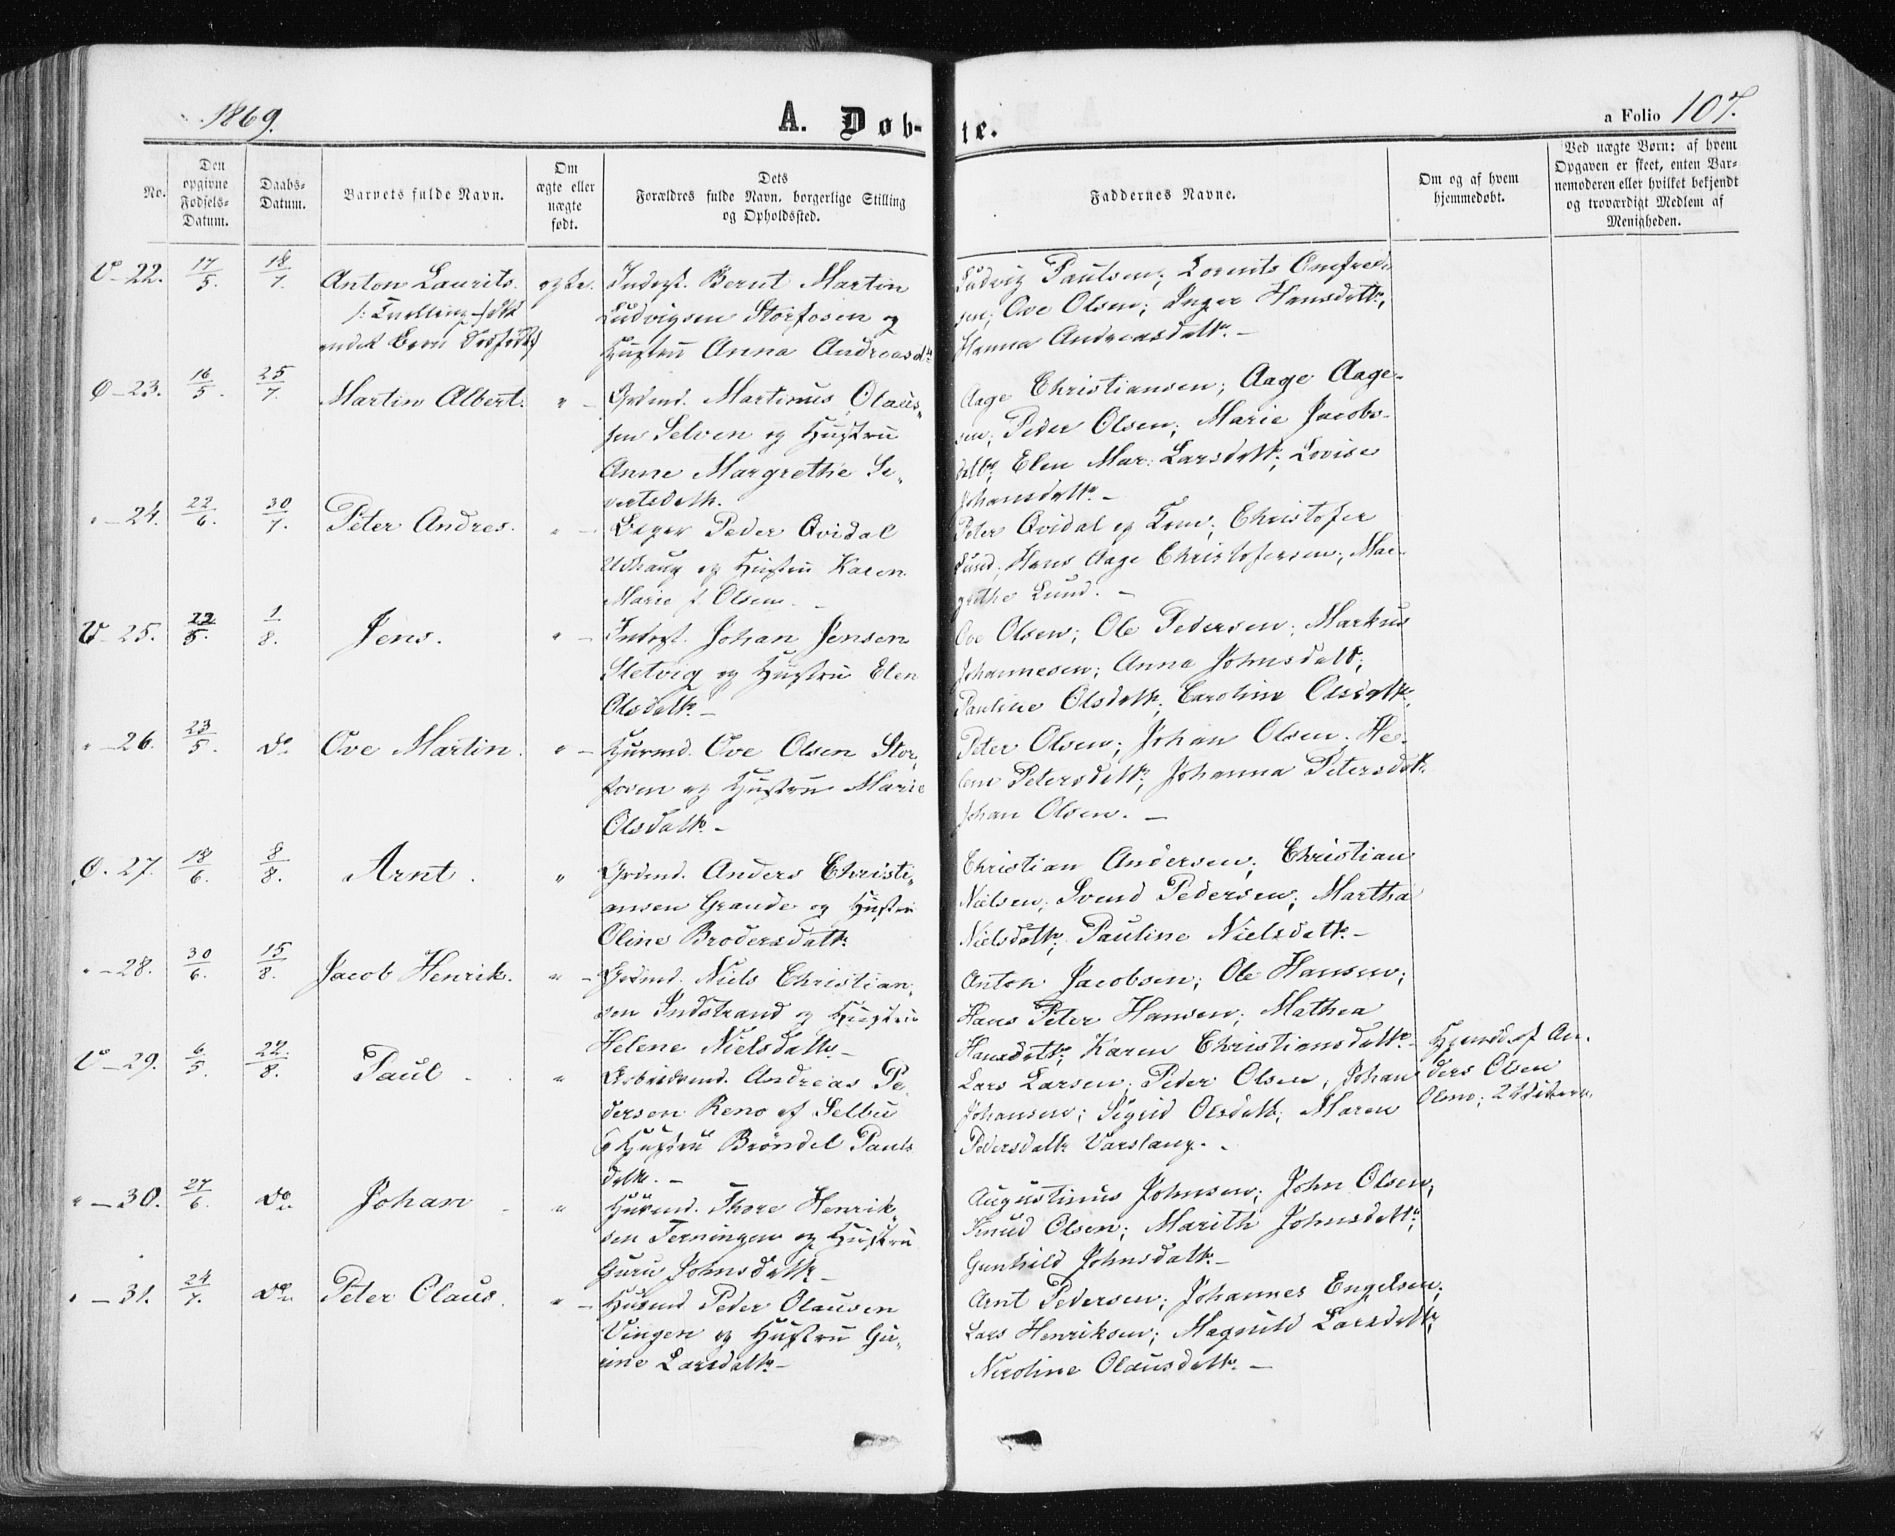 1869.
A. Døb-te.
a Folio 107.
No.
Den opgivne Fødsels-Datum.
Daabs-Datum.
Barnets fulde Navn.
Om ægte eller uægte født.
Dets Forældres fulde Navn, borgerlige Stilling og Opholdssted.
Faddernes Navne.
Om og af hvem hjemmedøbt.
Ved uægte Børn: af hvem Opgaven er skeet, enten Barnemoderen eller hvilket bekjendt og troværdigt Medlem af Menigheden.
V-22. 17/5. 18/7. Anton Laurits. ægte. Inderst. Bernt Martin
Ludvigsen Storfosen og
Hustru Anna Andreasd.
Ludvig Paulsen; Lornits
sen; Ove Olsen; Inger Hansdatr;
Hanna Andreasdatr. -
O-23. 16/5. 25/7. Martin Albert. " - Grdmd. Martinus Olaus-
sen Selven og Hustru
Anne Margrethe Se-
vertsdatr.
Aage Christiansen; Aage Aage-
sen; Peder Olsen; Marie Jacobs-
datr; Elen Mar: Larsdatr; Lovise
Johansdatr. -
" - 24. 22/6. 30/7. Peter Andres. " - Peder Qvidal
Udhaug og Hustru Karen
Marie f. Olsen. -
Peter Qvidal og Kone; Christofer
Lund; Hans Aage Christofersen; Mar-
grethe Lund. -
V-25. 22/5. 1/8. Jens. " - Inderst. Johan Jensen
Sletvig og Hustru Elen
Olsdatr. -
Ove Olsen; Ole Pedersen; Markus
Johannesen; Anna Johnsdatr;
Pauline Olsdatr; Caroline Olsdatr.
" - 26. 23/5. do. Ove Martin. " - Husmd. Ove Olsen Stor-
fosen og Hustru Marie
Olsdatr. -
Peter Olsen; Johan Olsen. He-
lene Petersdatr; Johanna Petersdatr.
Johan Olsen. -
O. 27. 18/6. 8/8. Arnt. " Grdmd. Anders Christi-
ansen Grande og Hustru
Oline Brodersdatr.
Christian Andersen; Christian
Nielsen; Svend Pedersen; Martha
Nielsdatr; Pauline Nielsdatr. -
" - 28. 30/6. 15/8. Jacob Henrik. " - Grdmd. Niels Christian-
sen Indstrand og Hustru
Helene Nielsdatr. -
Anton Jacobsen; Ole Hansen;
Hans Peter Hansen; Mathea
Hansdatr; Karen Christiansdatr. -
V-29. 6/5. 22/8. Paul. " Arbeidsmd. Andreas Pe-
dersen Reno af Selbu
og Hustru Brøndel Pauls-
datr. -
Lars Larsen; Peder Olsen; Johan
Johansen; Sigrid Olsdatr; Maren
Pedersdatr Varslang. -
Hjemdøbt af An-
ders Olsen
" - 30. 27/6. do. Johan. " Husmd. Thore Henrik-
sen Terningen og Hustru
Guru Johnsdatr. -
Augustinus Johnsen; John Olsen;
Knud Olsen; Marith Johnsdatr;
Gunhild Johnsdatr. -
" - 31. 24/7. do. Peter Olaus. " - Husmd. Peder Olausen
Vingen og Hustru Gu-
rine Larsdatr. -
Arnt Pedersen; Johannes Engelsen;
Lars Henriksen; Magnild Larsdatr;
Nicoline Olausdatr. -